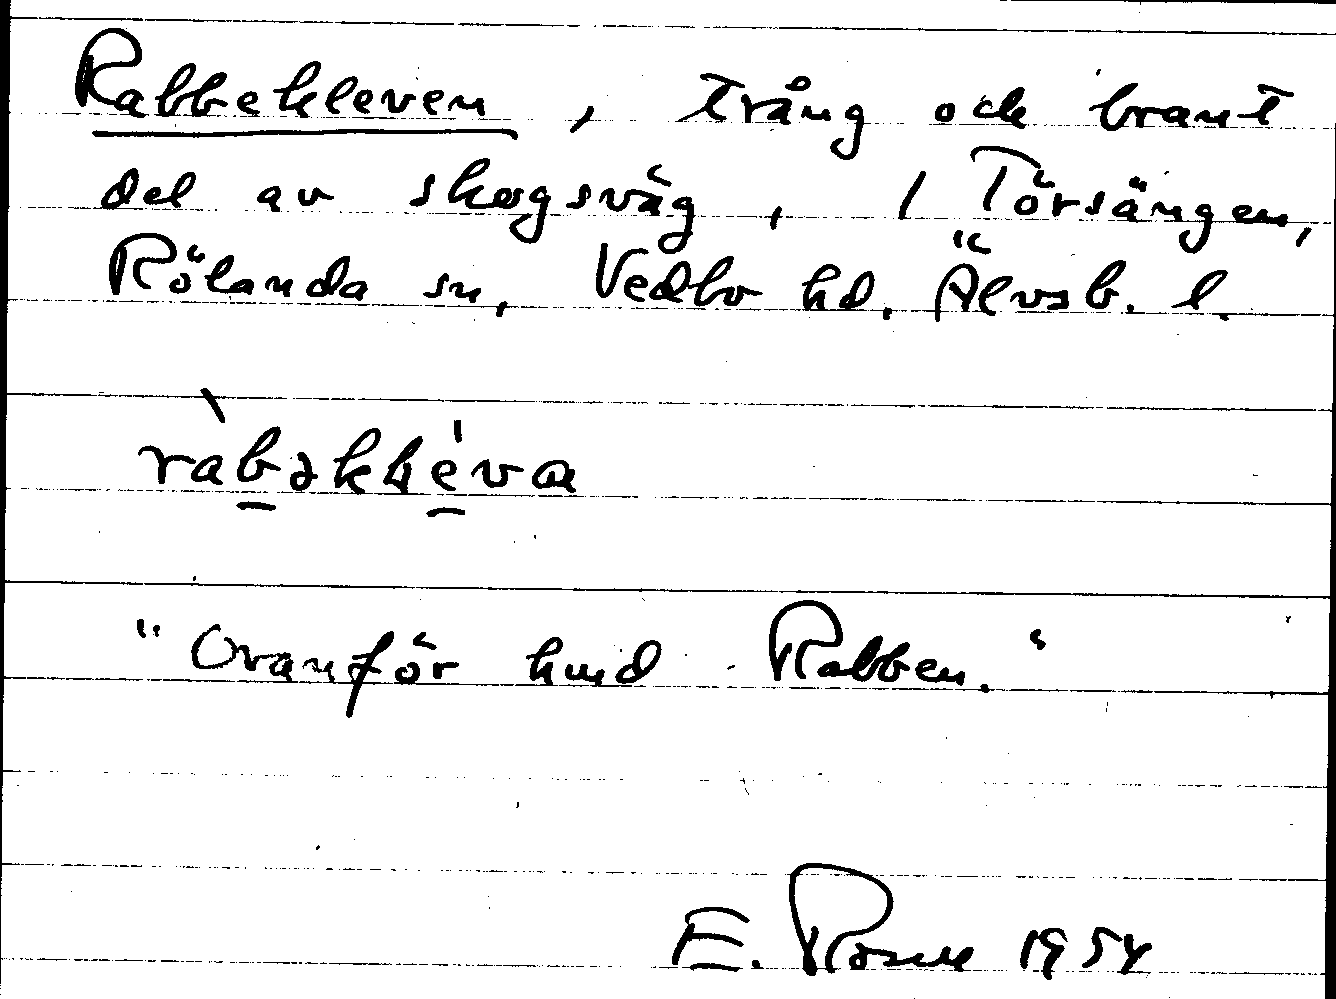 Rabbekleven, trång och brant
del av skogsväg, / Törsängen,
Rölanda sn, Vedbo hd. Älvsb. l.
"Ovanför hund Rabben."
E. Rosell 1954